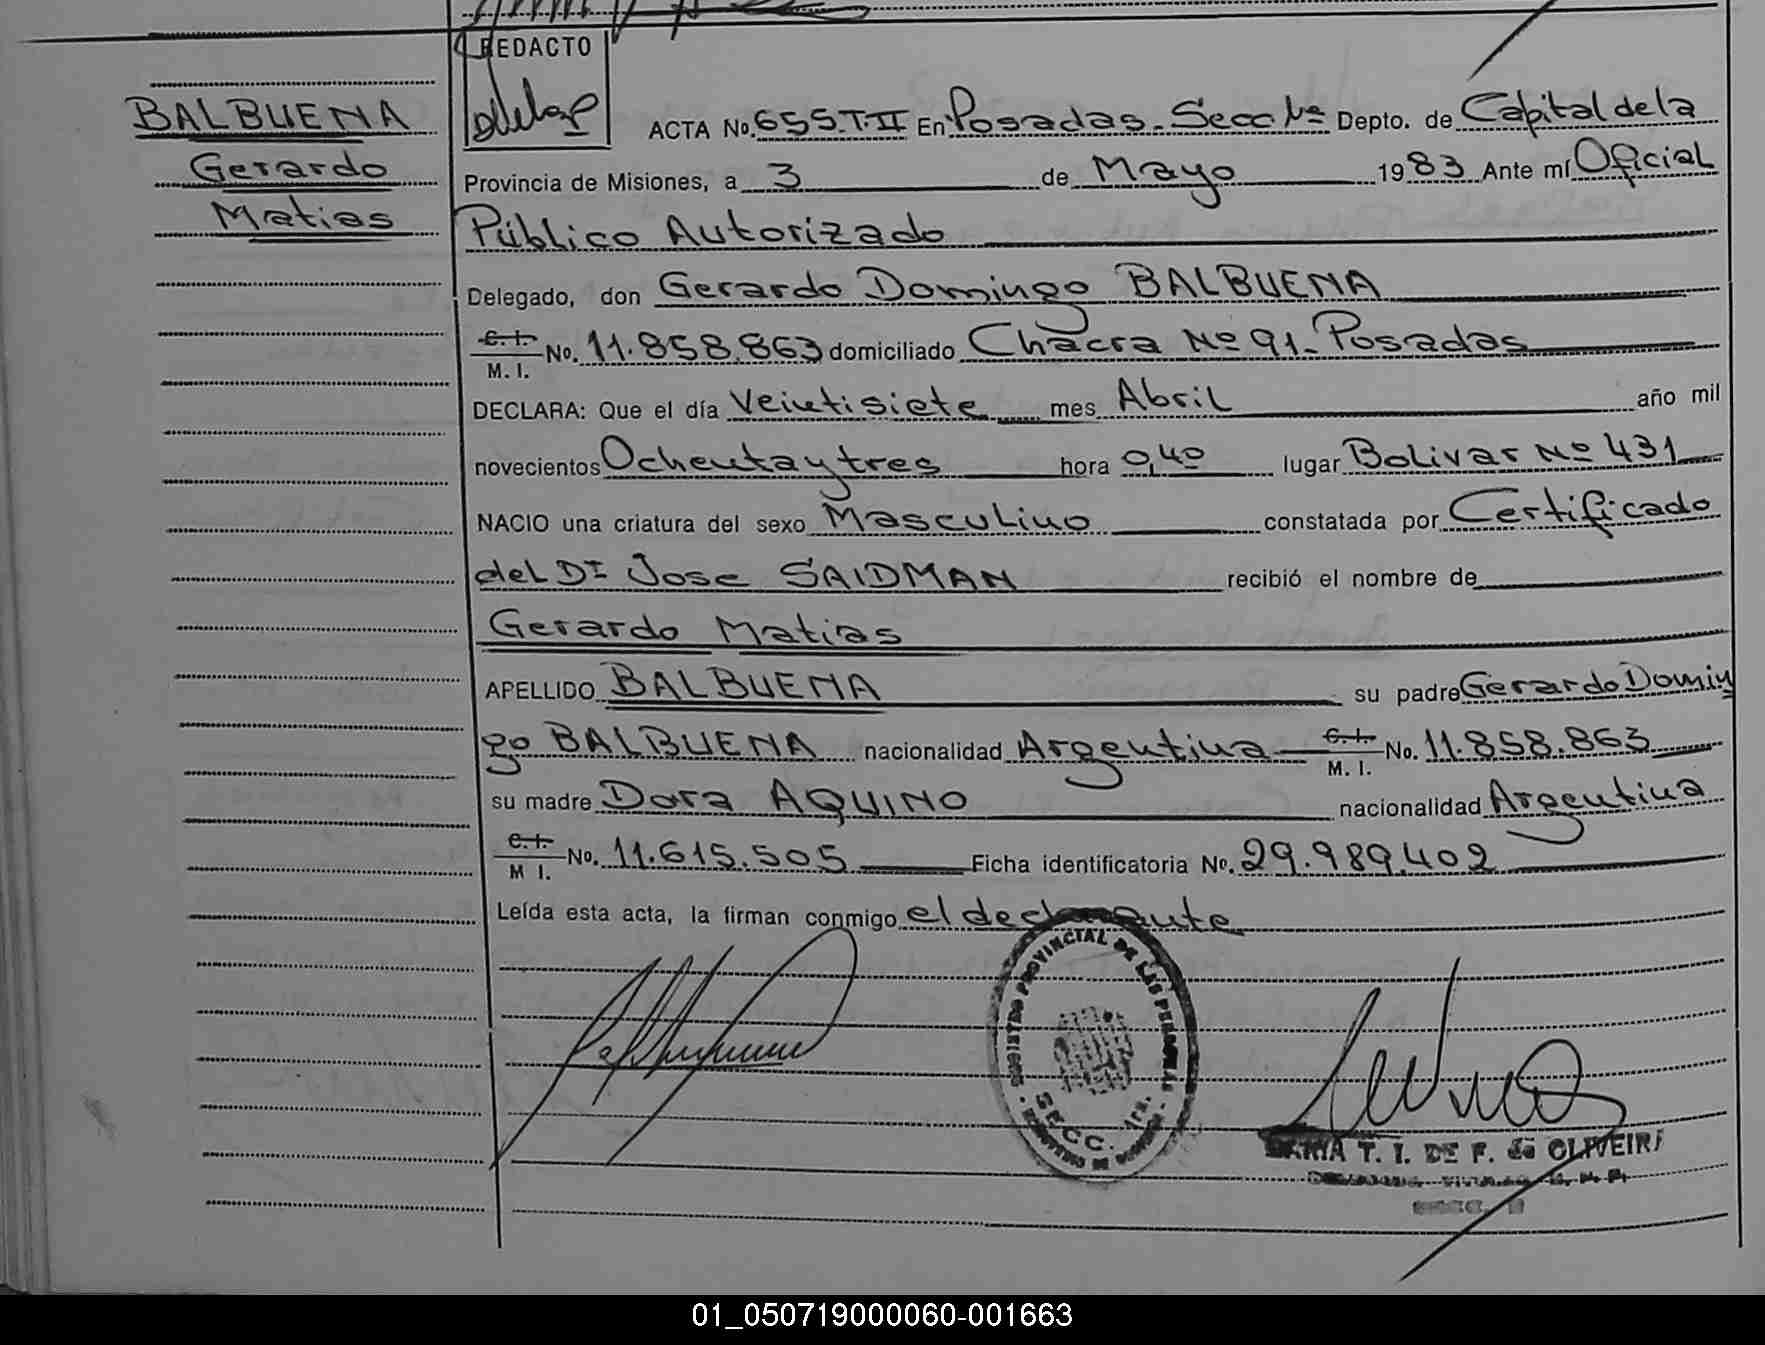 REDACTO
BALBUENA
Gerardo
Matias
ACTA No. 655.T-II En Posadas. Secc. 1ª Depto. de Capital de la
Provincia de Misiones, a 3 de Mayo 1983 Ante mí Oficial
Público Autorizado
Delegado, don Gerardo Domingo BALBUENA
C.I. M.I. No. 11.858.863 domiciliado Chacra Nº 91. Posadas
DECLARA: Que el día Veintisiete mes Abril año mil
novecientos Ochenta y tres hora 0,40 lugar Bolivar Nº 431
NACIO una criatura del sexo Masculino constatada por Certificado
del Dr Jose SAIDMAN recibió el nombre de
Gerardo Matias
APELLIDO BALBUENA su padre Gerardo Domin
go BALBUENA nacionalidad Argentina C.I. M.I. No. 11.858.863
su madre Dora AQUINO nacionalidad Argentina
C.I. M I. No. 11.615.505 Ficha identificatoria No. 29.989.402
Leída esta acta, la firman conmigo el declarante
REGISTRO PROVINCIAL DE LAS PERSONAS
SECC. 1ra.
MARIA T. I. DE F. de OLIVEIRA
01_050719000060-001663